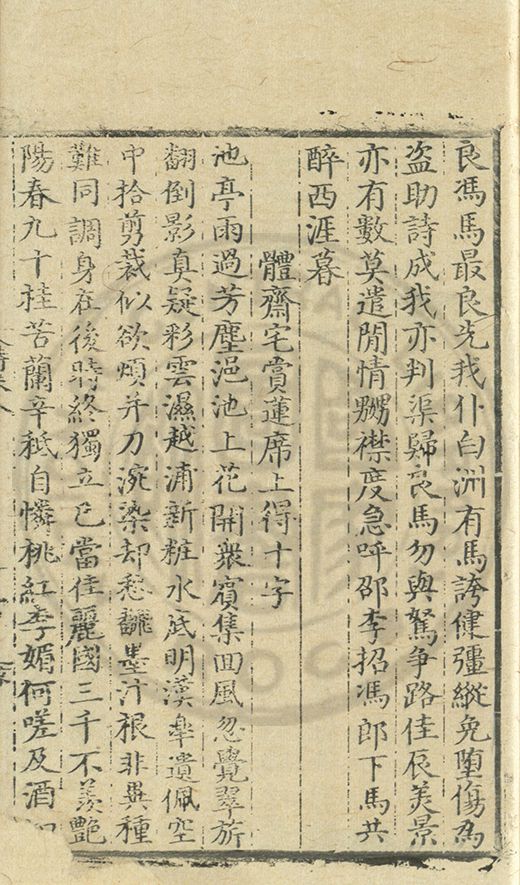 良馮馬最良先我仆白洲有馬誇健彊縱免墮傷為
盗助詩成我亦判渠歸良馬勿與駑争路佳辰美景
亦有數莫遣閒情嬲襟度急呼邵李招馮郎下馬共
醉西涯暮
體齋宅賞蓮席上得十字
池亭雨過芳塵浥池上花開衆賓集回風忽覺翠旂
翻倒影真疑彩雲濕越浦新粧水底明漢臯遺佩空
中拾剪裁似欲煩并刀涴染却愁飜墨汁根非異種
難同調身在後時終獨立已當佳麗國三千不羨艷
陽春九十桂苦蘭辛秖自憐桃紅李媚何嗟及酒